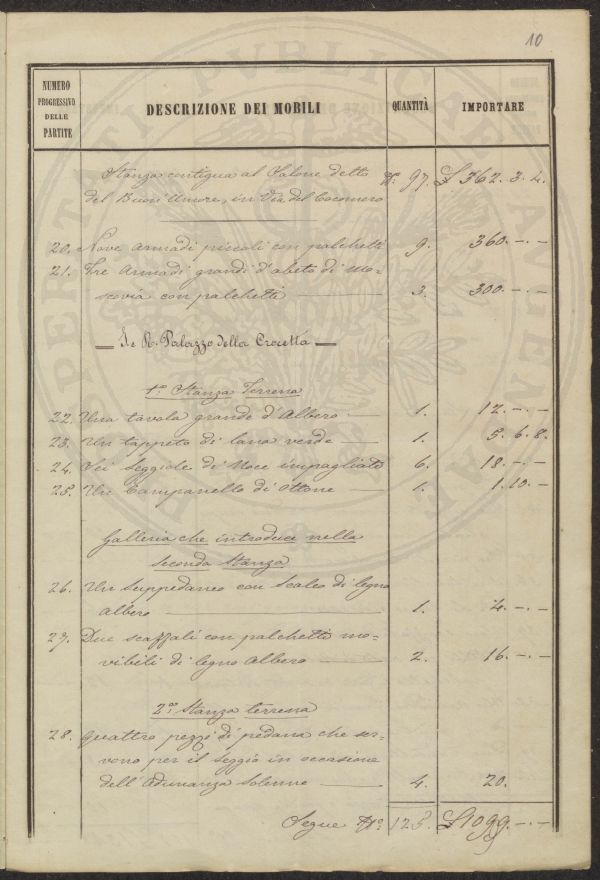 10
NUMERO PROGRESSIVO DELLE PARTITE DESCRIZIONE DEI MOBILI QUANTITÀ IMPORTARE
Stanza contigua al Salone detto N.° 97. £ 362. 3. 4.
del Buon' Umore, in Via del Cocomero
20. Nove armadi piccoli con palchetti 9. 360. - . -
21. Tre armadi grandi d'abeto di Mo=
scovia con palchetti 3. 300. - . -
I. e R. Palazzo della Crocetta
1.a Stanza Terrena
22. Una tavola grande d'Albero 1. 12. - . -
23. Un tappeto di lana verde 1. 5. 6. 8.
24. Sei Seggiole di Noce impagliate 6. 18. - . -
25. Un Campanello di Ottone 1. 1. 10. -
Galleria che introduce nella
Seconda Stanza
26. Un Suppedaneo con Scaleo di legno
albero 1. 4. - . -
27. Due scaffali con palchetti mo=
vibili di legno Albero 2. 16. - . -
2.a Stanza terrena
28. Quattro pezzi di pedana che ser=
vono per il Seggio in occasione
dell'Adunanza Solenne 4. 20.
Segue N.° 125. £ 1099. - . -
PERTATI PVBLICAE